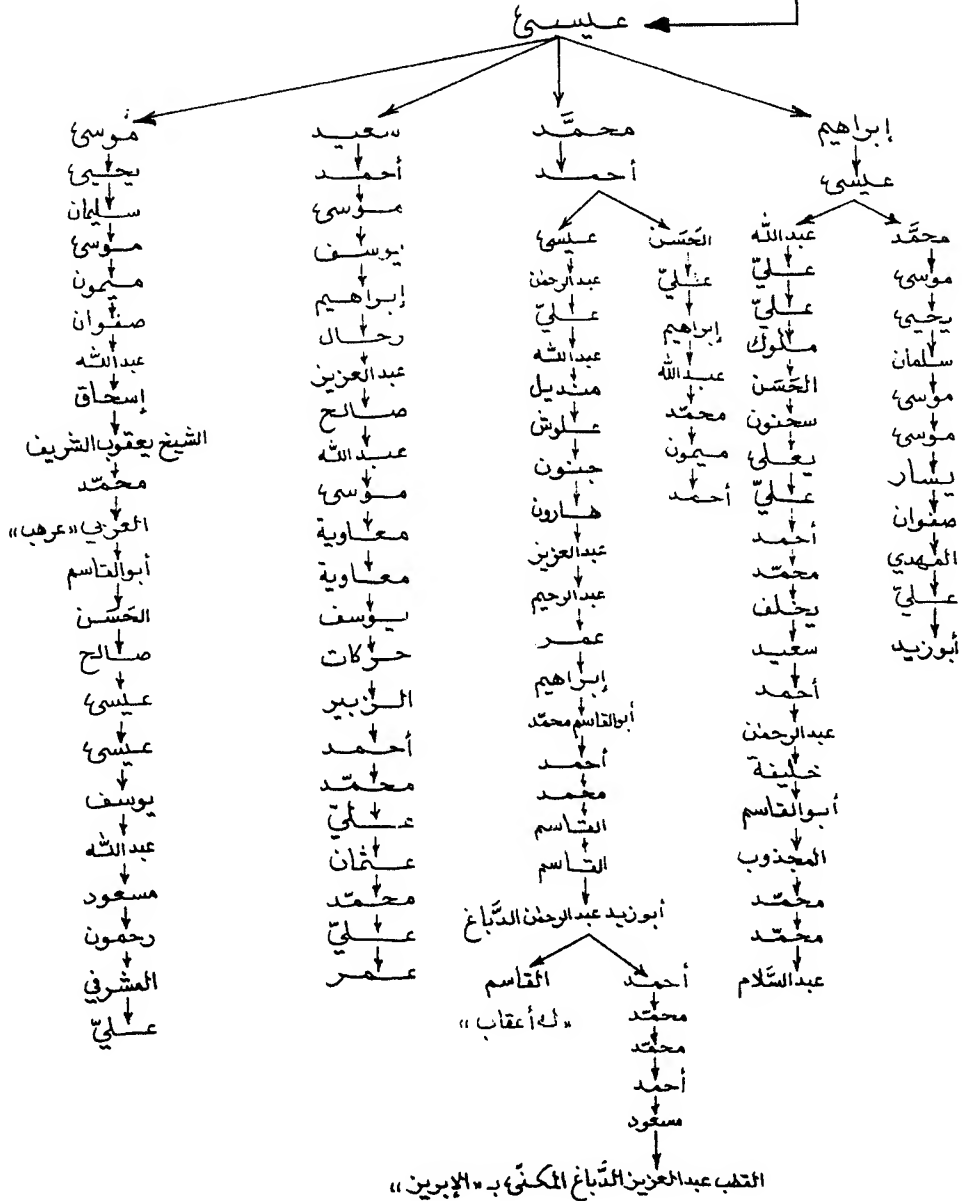 عيسىٰ
إبراهيم
عيسىٰ
محمَّد
موسىٰ
يحيىٰ
سلمان
موسىٰ
موسىٰ
يسار
صفوان
المهدي
عليّ
أبوزيد
عبدالله
عليّ
عليّ
ملوك
الحَسَن
سحنون
يعلىٰ
عليّ
أحمد
محمّد
يخلف
سعيد
أحمد
عبدالرحمٰن
خليفة
أبوالقاسم
المجذوب
محمّد
محمّد
عبدالسَّلام
محمَّد
أحمد
الحَسَن
عليّ
إبراهيم
عبدالله
محمّد
ميمون
أحمد
عيسىٰ
عبدالرحمٰن
عليّ
عبدالله
منديل
علوش
جنون
هارون
عبدالعزيز
عبدالرحيم
عمر
إبراهيم
أبوالقاسم محمّد
أحمد
محمد
القاسم
القاسم
أبوزيد عبدالرحمٰن الدَّباغ
أحمد
محمّد
محمّد
أحمد
مسعود
القطب عبدالعزيز الدَّباغ المكنّىٰ بـ «الإبريز»
القاسم
«له أعقاب»
سعيد
أحمد
موسىٰ
يوسف
إبراهيم
رحال
عبدالعزيز
صالح
عبدالله
موسىٰ
معاوية
معاوية
يوسف
حركات
الزبير
أحمد
محمّد
عليّ
عثمان
محمّد
عليّ
عمر
مُوسىٰ
يحيىٰ
سليمان
موسىٰ
ميمون
صفوان
عبدالله
إسحاق
الشيخ يعقوب الشريف
محمّد
العربي «عرهب»
أبوالقاسم
الحَسَن
صالح
عيسىٰ
عيسىٰ
يوسف
عبدالله
مسعود
رحمون
المشرفي
عليّ